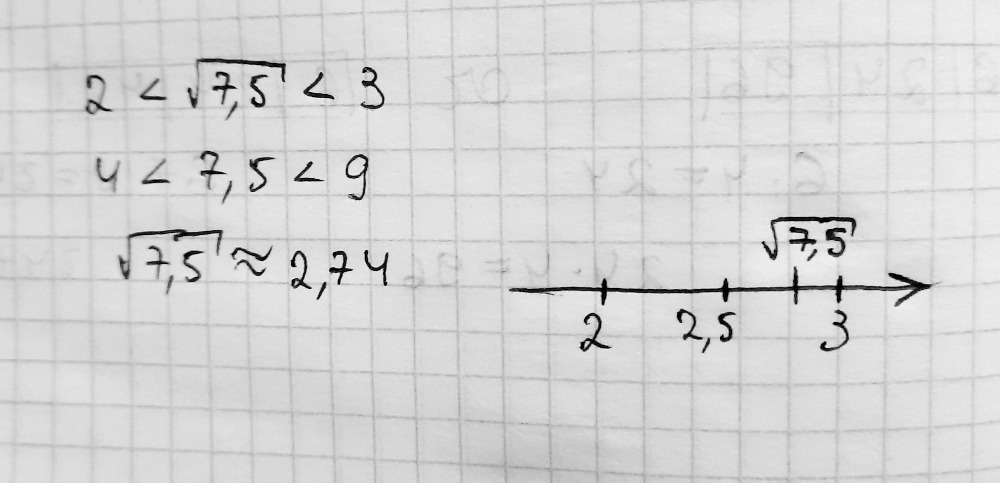 2 < √7,5 < 3
4 < 7,5 < 9
√7,5 ≈ 2,74
√7,5
2 2,5 3